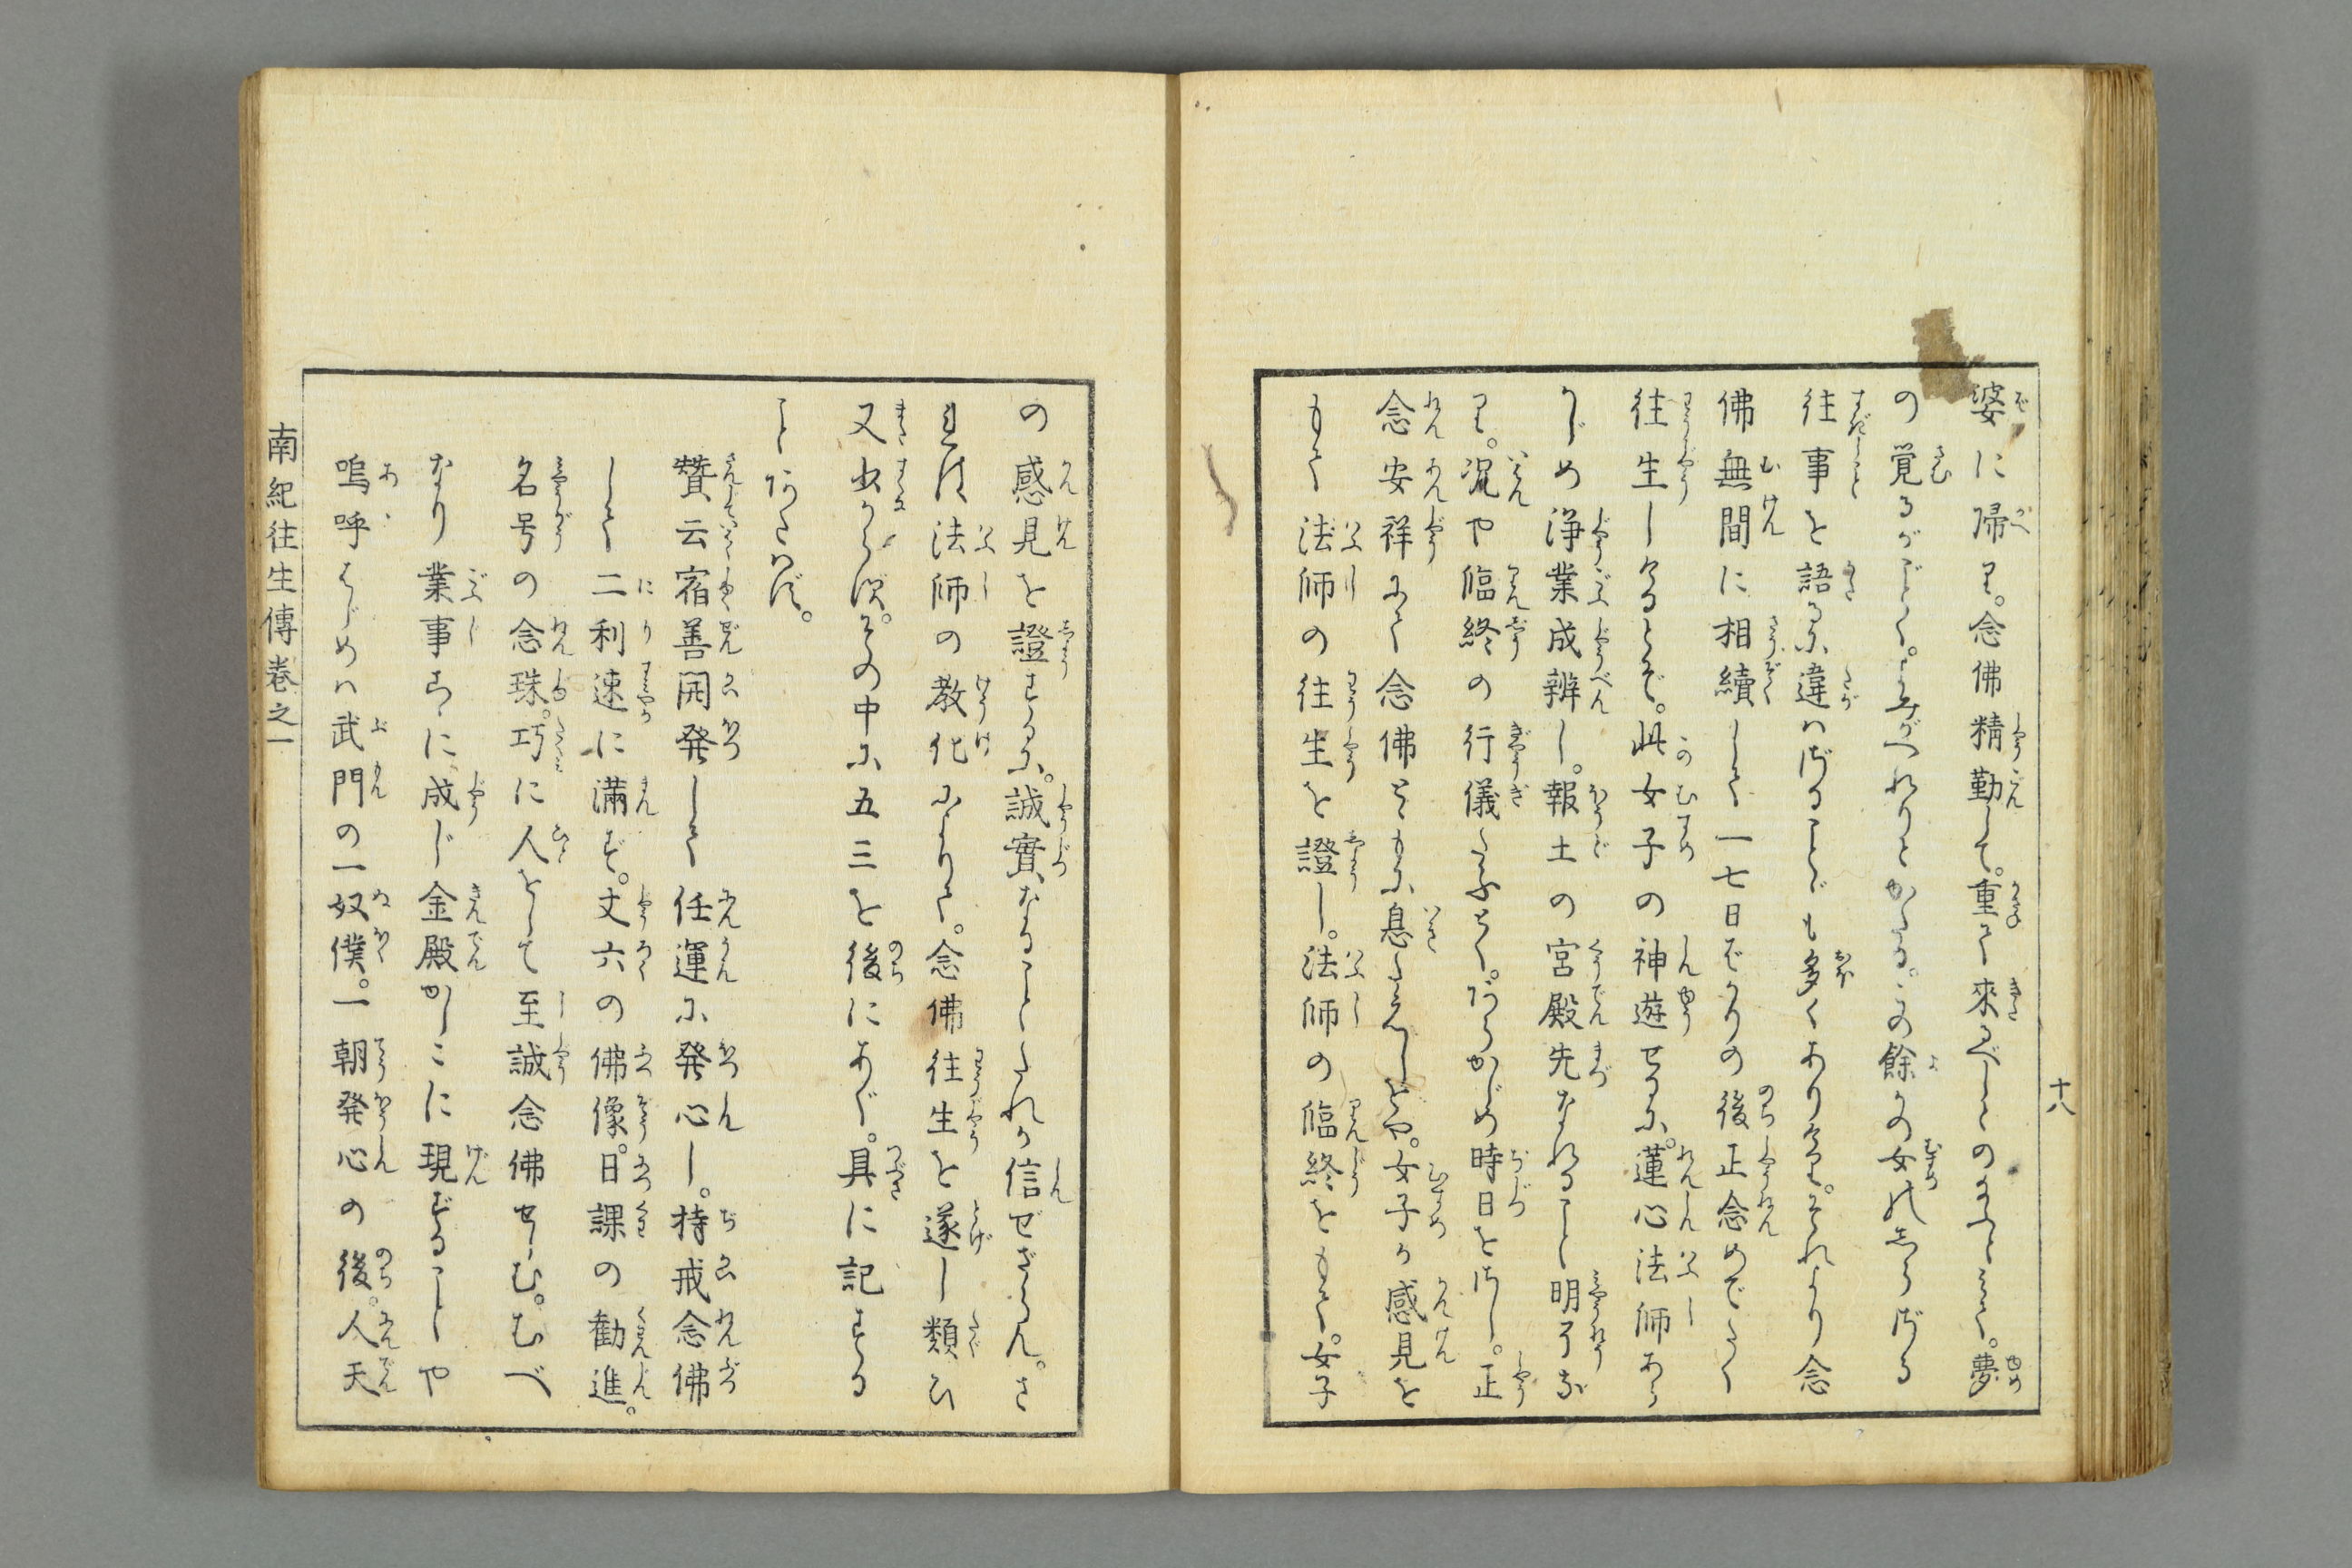 十八
婆に帰り。念佛精勤して。重て來るべしとのたまふとみて。夢
の覚るがごとく。よみがへれりとかたる。その餘かの女のしらざる
往事を語るに違はざることども多くありけり。それより念
佛無間に相續して一七日ばかりの後正念めでたく
往生しけるとぞ。此女子の神遊せるに。蓮心法師あら
かじめ浄業成辨し。報土の宮殿先なれること明了な
り。況や臨終の行儀たふとく。あらかじめ時日をさし。正
念安祥にして念佛とともに息たえしをや。女子が感見を
もて法師の往生を證し。法師の臨終をもて。女子
の感見を證するに。誠實なることたれか信ぜざらん。さ
れは法師の教化によりて。念佛往生を遂し類ひ
又少からず。その中に五三を後にあぐ。具に記する
ことあたはず。
贊云宿善開発して任運に発心し。持戒念佛
して二利速に満ず。丈六の佛像。日課の勧進。
名号の念珠。巧に人をして至誠念佛せしむ。むべ
なり業事こゝに成じ金殿かしこに現ずることや
嗚呼はじめハ武門の一奴僕。一朝発心の後。人天
南紀往生傳巻之一